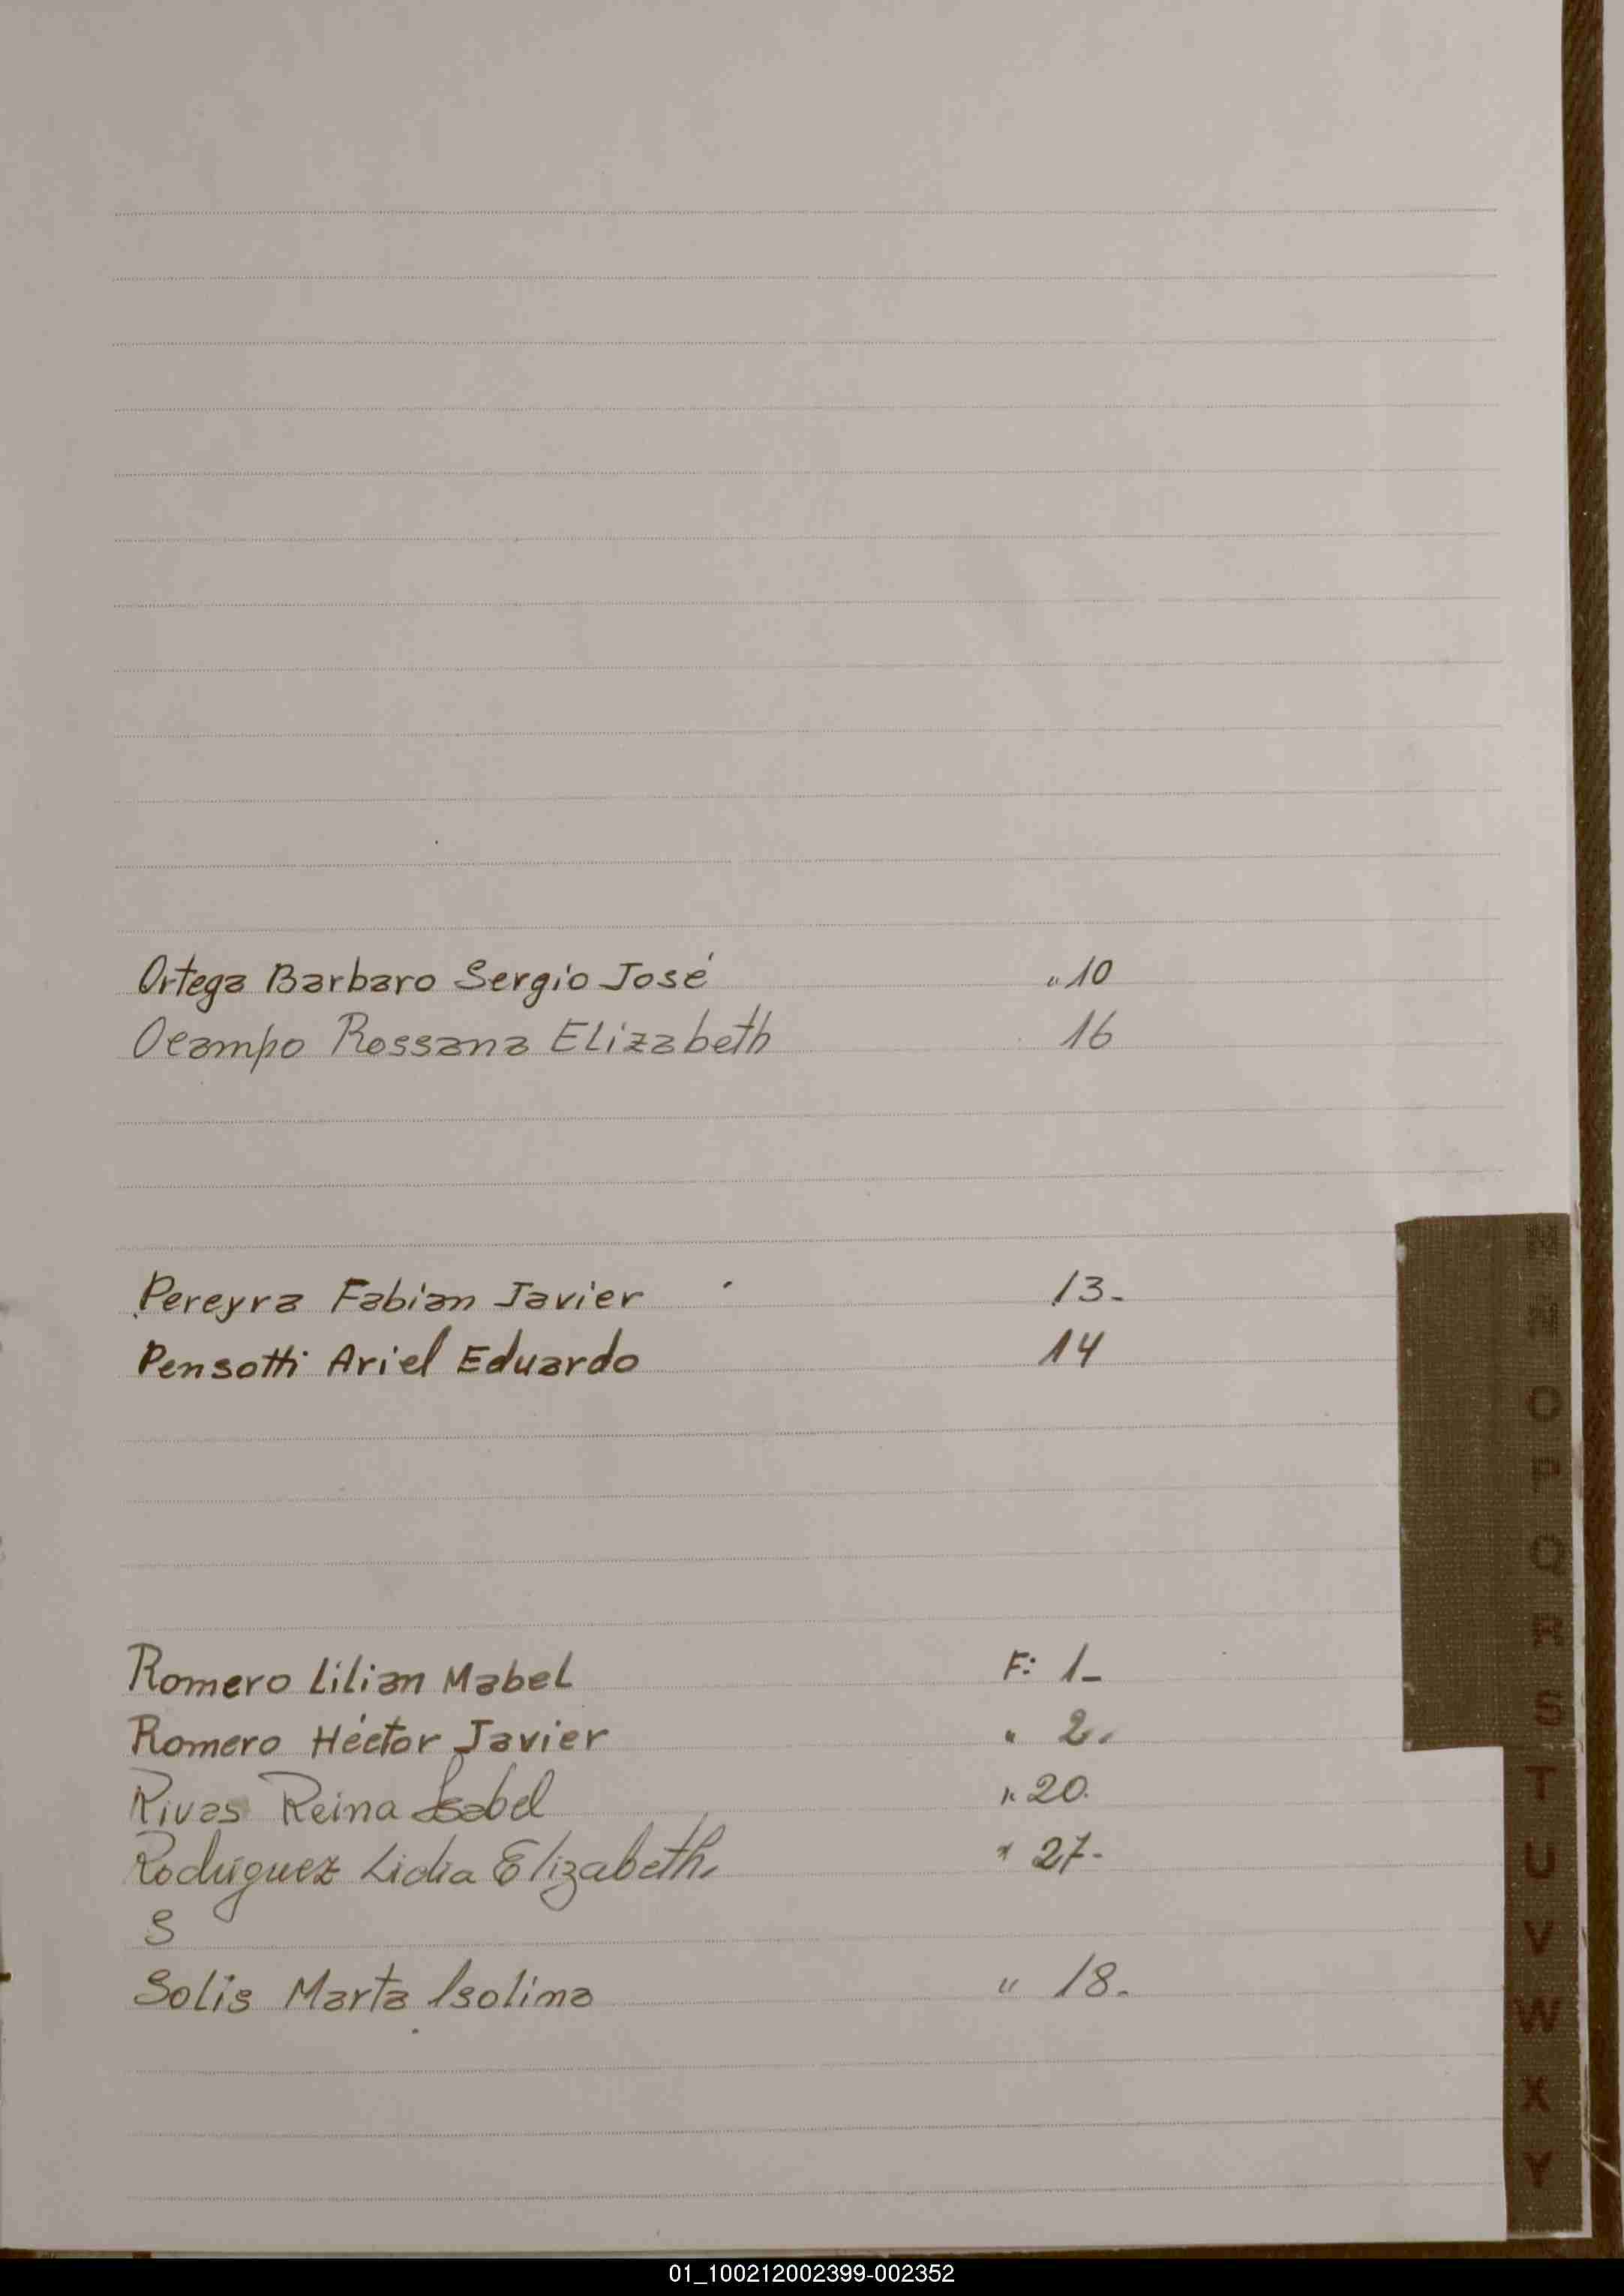 Ortega Barbaro Sergio José " 10
Ocampo Rossana Elizabeth 16
Pereyra Fabian Javier 13-
Pensotti Ariel Eduardo 14
Romero Lilian Mabel F: 1-
Romero Héctor Javier " 2.
Rivas Reina Isabel " 20.
Rodriguez Lidia Elizabeth. " 27-
S
Solis Marta Isolina " 18.
M
N
O
P
Q
R
S
T
U
V
W
X
Y
01_100212002399-002352